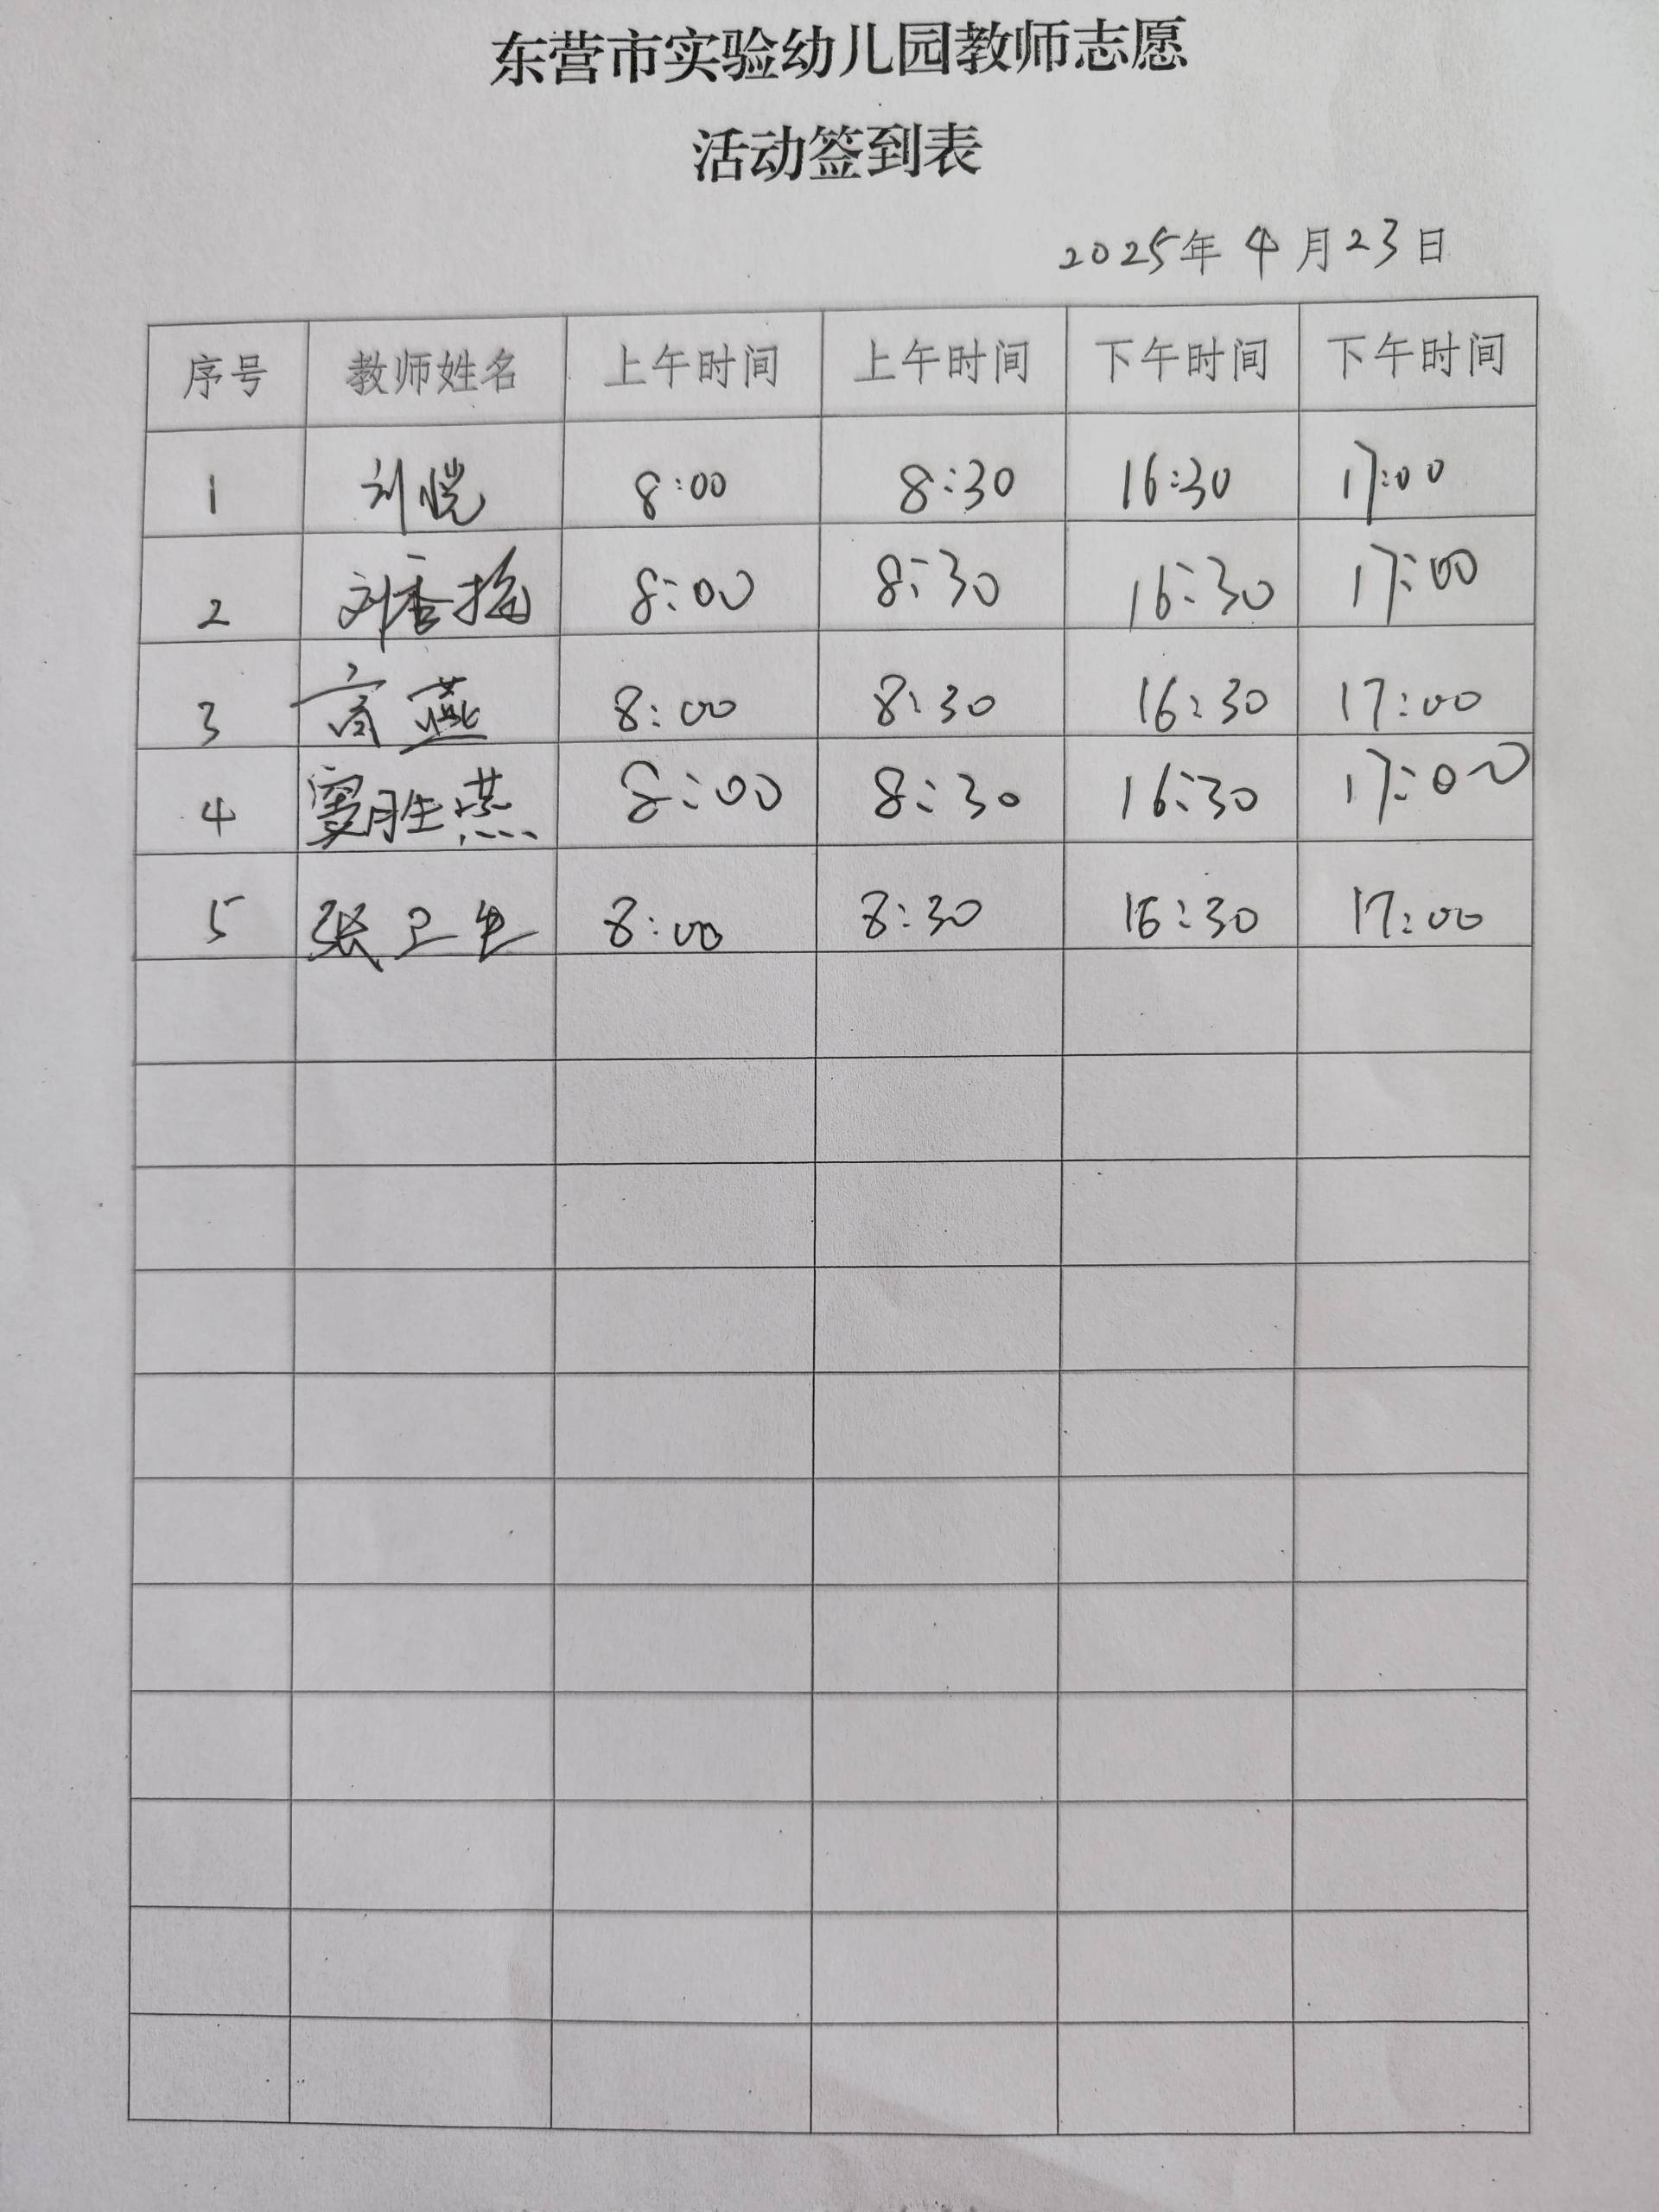 东营市实验幼儿园教师志愿
活动签到表
2025年 4月23日
序号 教师姓名 上午时间 上午时间 下午时间 下午时间
1 刘恺 8:00 8:30 16:30 17:00
2 刘香梅 8:00 8:30 16:30 17:00
3 高燕 8:00 8:30 16:30 17:00
4 窦胜燕 8:00 8:30 16:30 17:00
5 张卫生 8:00 8:30 16:30 17:00